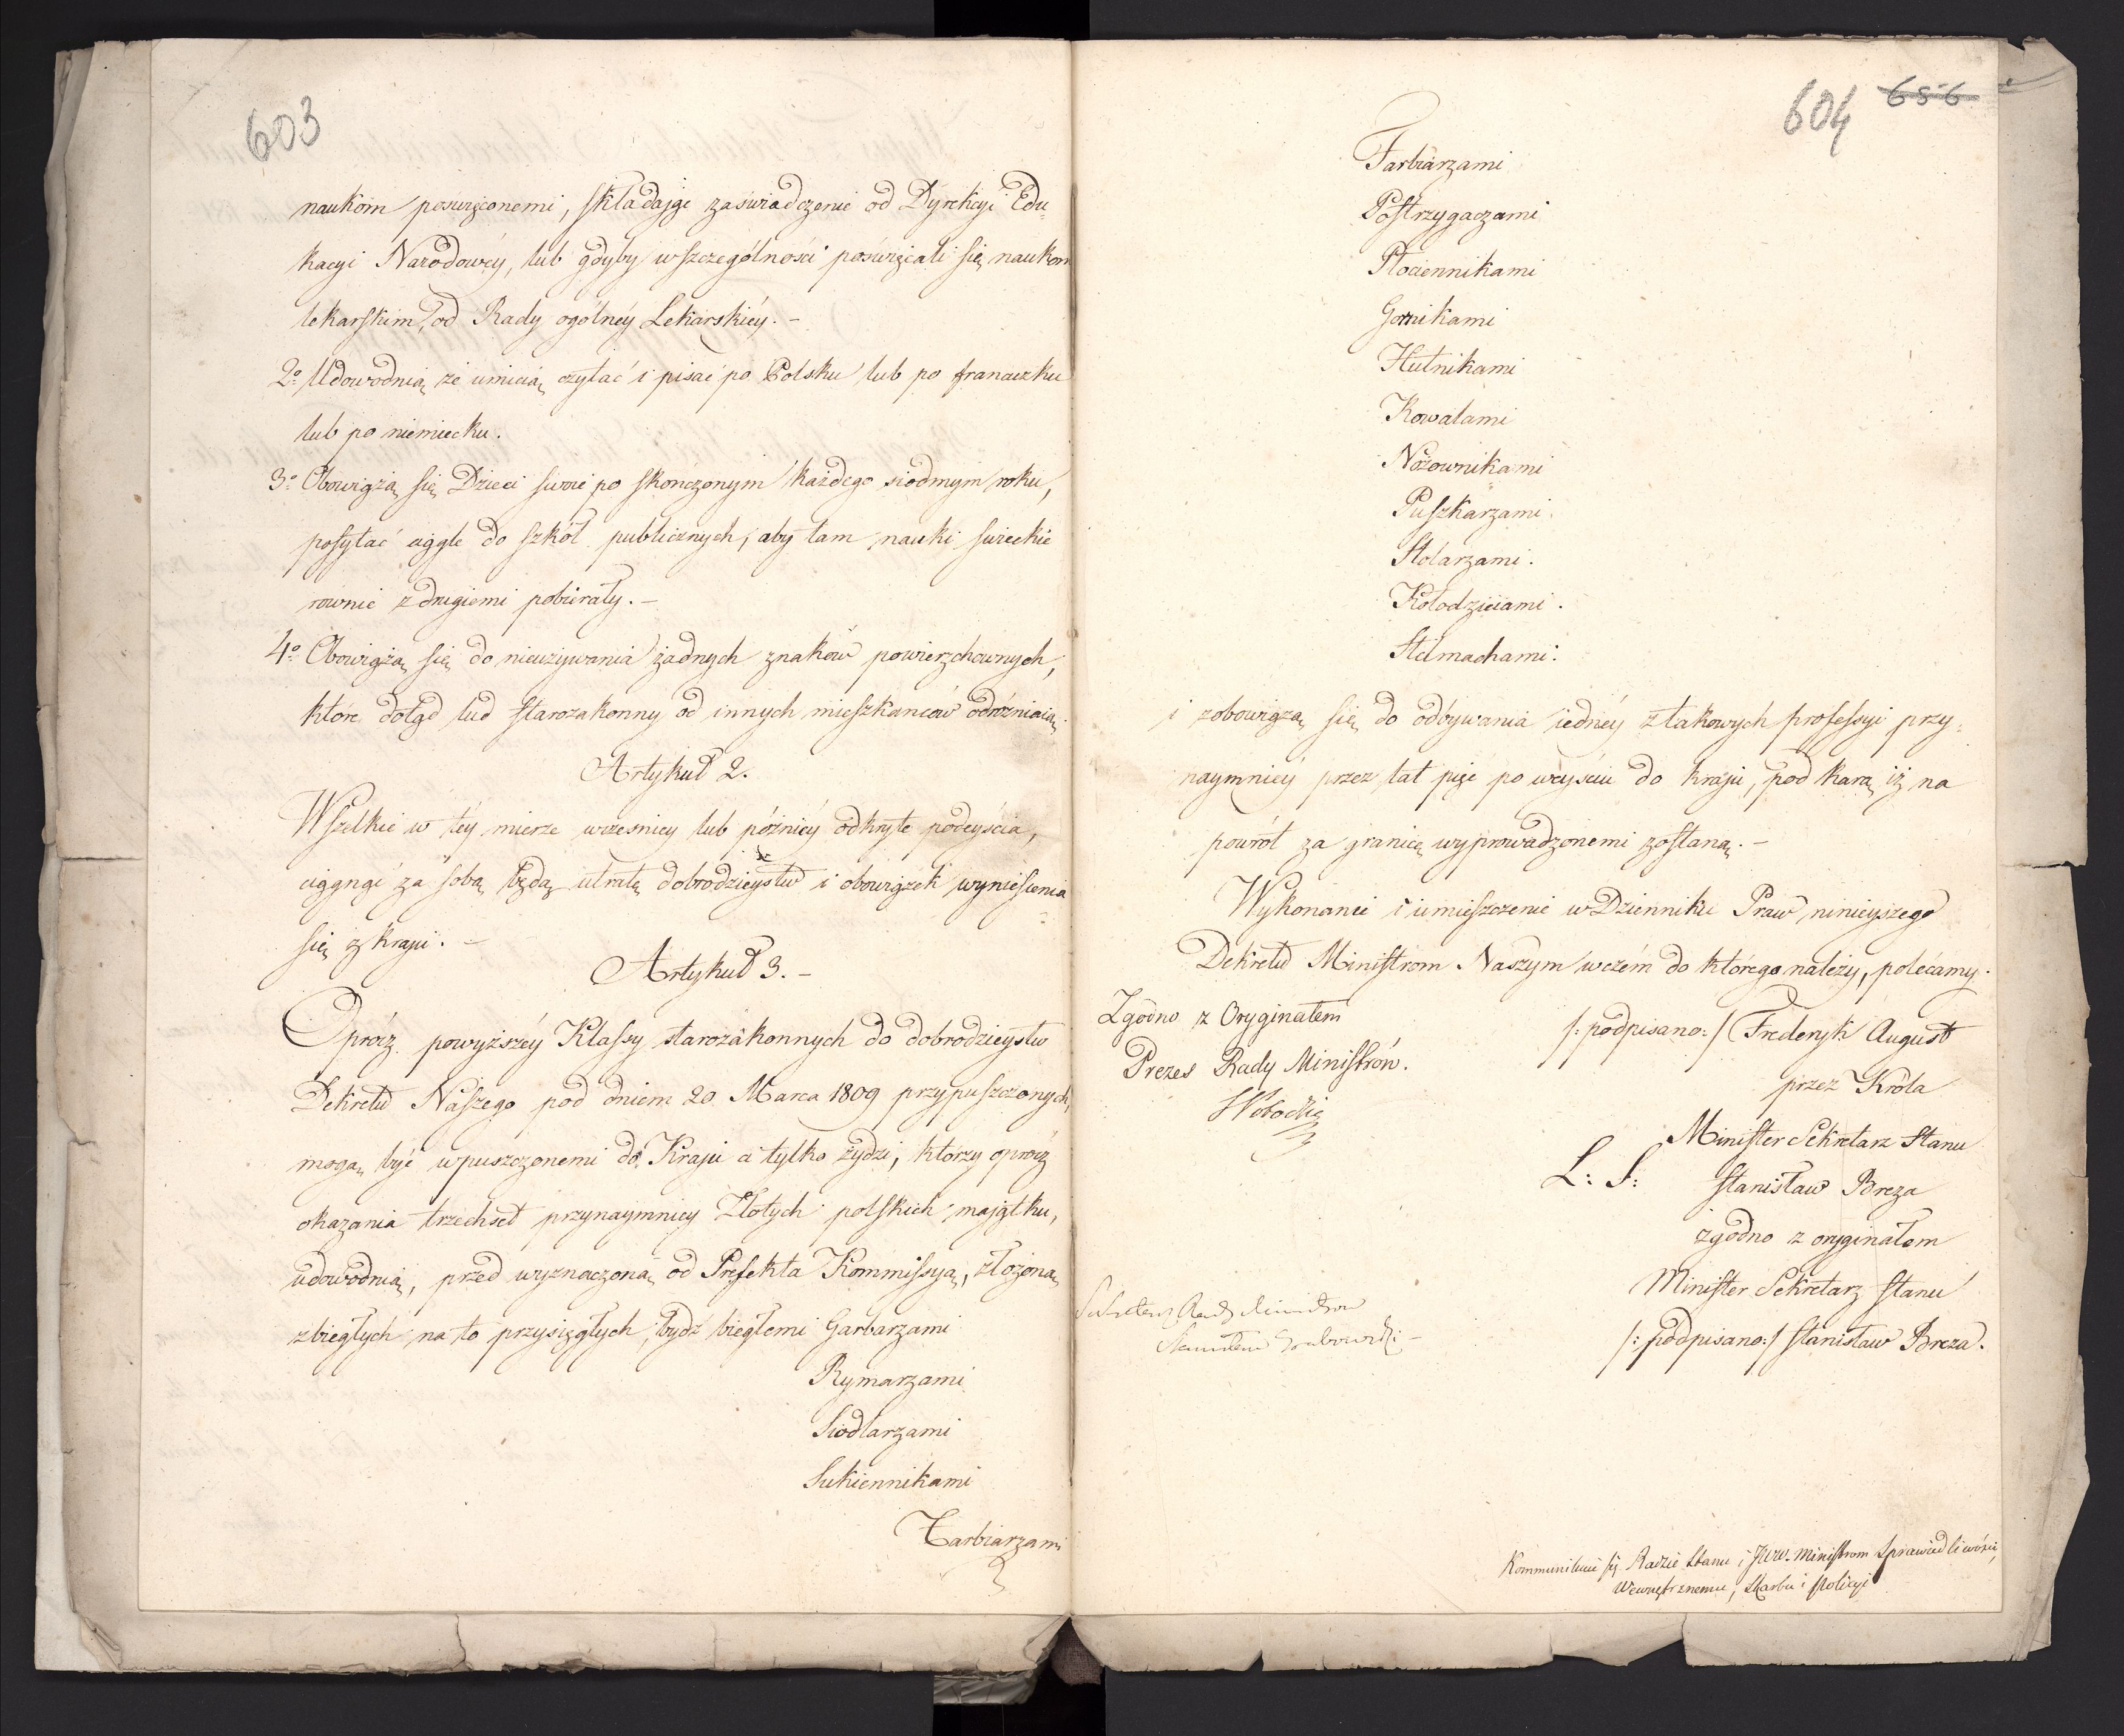 603
naukóm poswięconemi, składaiąc zaświadczenie od Dyrekcyi Edu-
kacyi Narodowéy, lub gdyby wszczególności poświęcali się naukom
lekarskim, od Rady ogólnéy Lekarskiéy. -
2o. Udowodnią że umieią czytać i pisać po Polsku lub po francuzku
lub po niemiecku.
3o. Obowiążą się Dzieci swoie po skończonym każdego siódmym roku,
posyłać ciągle do szkół publicznych, aby tam nauki świeckie
rownie z drugiemi pobierały. -
4o. Obowiążą się do nieużywania żadnych znaków powierzchownych,
które dotąd lud starozakonny od innych mieszkańców odróżniaią.
Artykuł 2.
Wszelkie w téy mierze wcześniey lub późniéy odkryte podeyścia,
ciągnąć za sobą będą utratę dobrodzieystw i obowiązek wyniesienia
się z kraju. -
Artykuł 3. -
Oprócz powyższéy Klassy starozakonnych do dobrodzieystw
Dekretu Naszego pod dniem 20 Marca 1809 przypuszczonych,
mogą być wpuszczonemi do Kraju ci tylko żydzi, którzy oprócz
okazania trzechset przynaymniey Złotych polskich maiątku,
udowodnią, przed wyznaczoną od Prefekta Kommissyą, złożoną
z biegłych na to przysięgłych, bydź biegłemi Garbarzami
Rymarzami
Siodlarzami
Sukiennikami
Farbiarzami
604 656
Farbiarzami
Postrzygaczami
Płociennikami
Gornikami
Hutnikami
Kowalami
Nożownikami
Puszkarzami.
Stolarzami.
Kołodzieiami.
Stelmachami:
i zobowiążą się do odbywania iednéy z takowych professyi przy-
naymniéy przez lat pięć po weyściu do kraju, pod karą iż na
powrót za granicę wyprowadzonemi zostaną. -
Wykonanei i umieszczenie w Dzienniku Praw ninieyszego
Dekretu Ministrom Naszym w czém do którego należy, polecamy.
Zgodno z Oryginałem
Prezes Rady Ministrów.
/: podpisano :/ Frederyk August
przez Króla
Minister Sekretarz Stanu
L: S: Stanisław Breza
zgodno z oryginałem
Minister Sekretarz Stanu
/: podpisano :/ Stanisław Breza.
Sekretarz Rady Ministrow
Stanisław Grabowski -
Kommunikuie się Radzie Stanu i JWW. Ministrom Sprawiedliwości,
Wewnętrznemu, Skarbu i Policyi